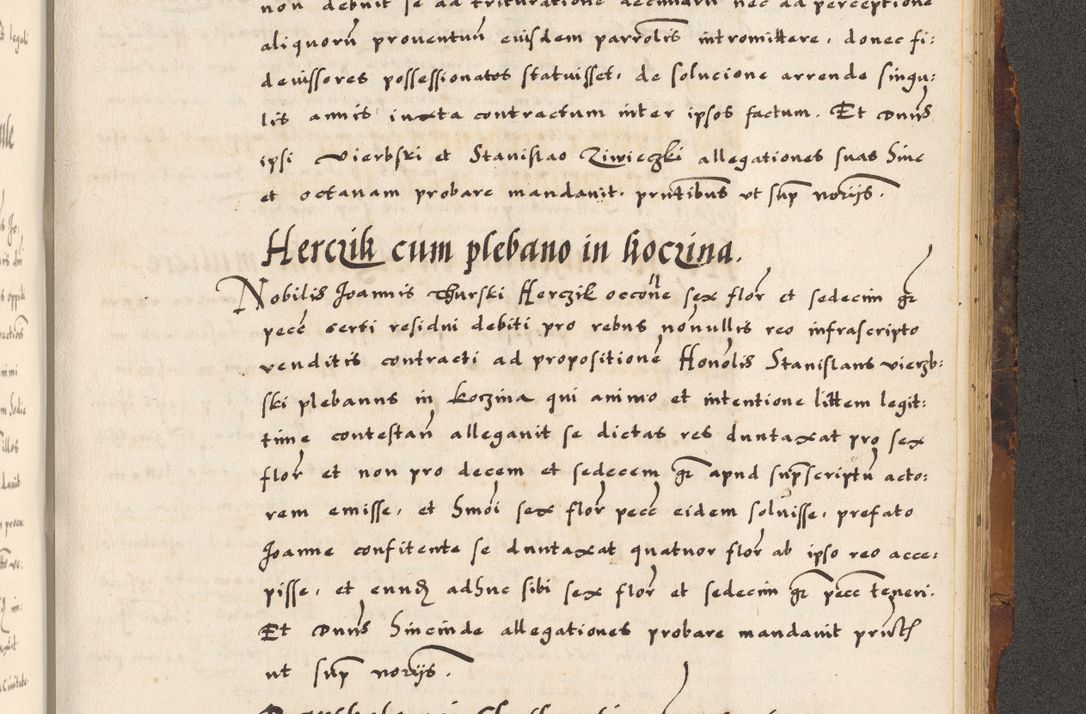 non debuit se ad trituratione decimarum nec ad perceptione
aliquorũ proventuũ eiusdem parrolis intromittere, donec fi:
deiussores possessionatos statuisset, de solucione arrende singu:
lis annis iuxta contractum inter ipsos factum. Et Dnus
ipsi Vierbski et Stanislao Ziwieczki allegationes suas hinc
et octavam probare mandavit. pntibus ut sup notrijs.
Herczik cum plebano in koczina.
Nobilis Joannis Thurski Herczik occone sex flor et sedecim gr
pecc certi residui debiti pro rebus nonullis reo infrascripto
venditis contracti ad propositione Honolis Stanislaus vierzb:
ski plebanus in koczina qui animo et intentione littem legit:
time contestan allegavit se dictas res duntaxat pro sex
flor et non pro decem et sedecem gr apud supscriptu acto:
rem emisse, et hmoi sex flor pecc eidem solvisse, prefato
Joanne confitente se duntaxat quatuor flor ab ipso reo acce:
pisse, et eundem adhuc sibi sex flor et sedecim gr pecc teneri.
Et Dnus hincinde allegationes probare mandavit
ut sup notrijs.